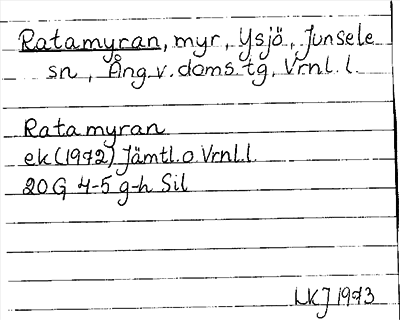 Ratamyran, myr, Ysjö, Junsele
sn, Ång.v.doms.tg, Vrnl. l.
Ratamyran
ek (1972) Jämtl. o. Vrnl.l
20 G 4-5 g-h Sil
LKJ 1973